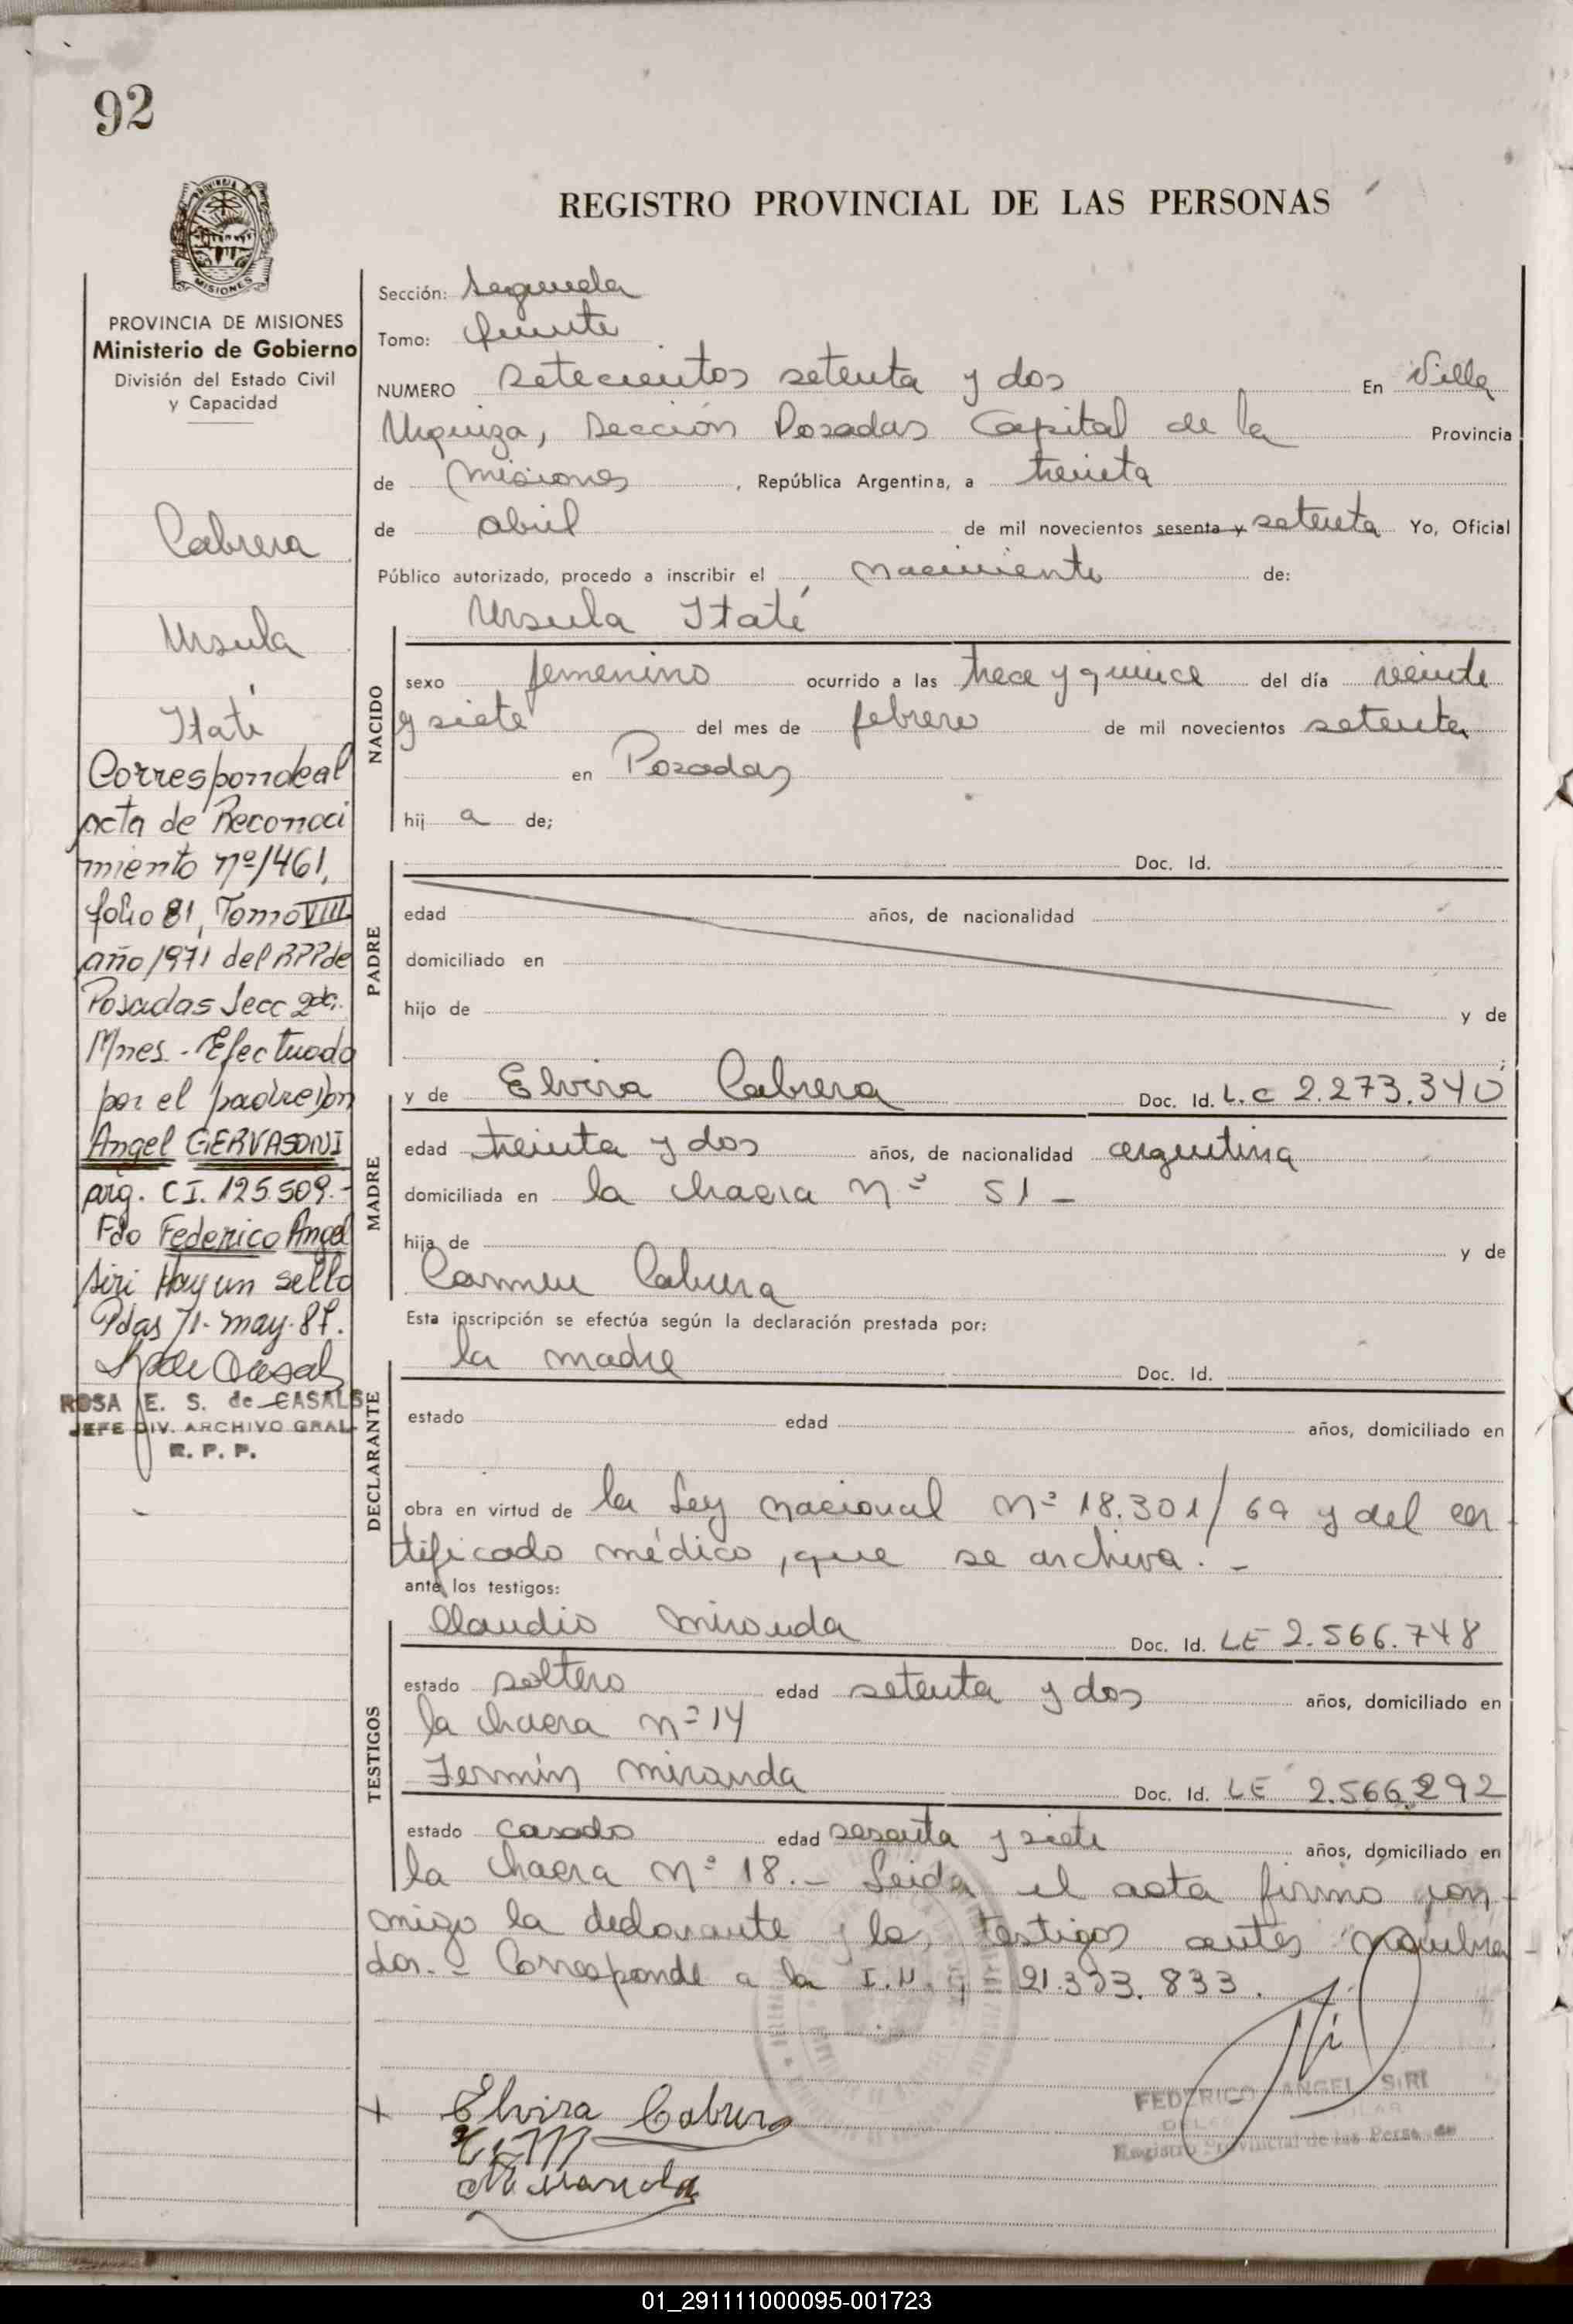 92
REGISTRO PROVINCIAL DE LAS PERSONAS
PROVINCIA DE MISIONES
Ministerio de Gobierno
División del Estado Civil
y Capacidad
Cabrera
Ursula
Itatí
Correspondeal
acta de Reconoci
miento nº1461,
folio 81, Tomo VIII
año 1971 del RPP de
Posadas Secc 2da.
Mnes. - Efectuado
por el padre Don
Angel GERVASONI
arg. CI. 125.509.-
Fdo Federico Angel
Siri Hay un sello
Pdas 71. may. 87.
ROSA E. S. de CASALS
JEFE DIV. ARCHIVO GRAL
R. P. P.
Sección: Segunda
Tomo: Quinto
NUMERO Setecientos setenta y dos En Villa
Urquiza, Sección Posadas Capital de la Provincia
de Misiones, República Argentina, a treinta
de abril de mil novecientos sesenta y setenta Yo, Oficial
Público autorizado, procedo a inscribir el nacimiento de:
Ursula Itatí
NACIDO
sexo femenino ocurrido a las trece y quince del día veinte
y siete del mes de febrero de mil novecientos setenta
en Posadas
hij a de;
PADRE
Doc. Id.
edad años, de nacionalidad
domiciliado en
hijo de y de
;
MADRE
y de Elvira Cabrera Doc. Id. L.C 2.273.340
edad treinta y dos años, de nacionalidad argentina
domiciliada en la chacra Nº 51 -
hija de y de
Carmen Cabrera
Esta inscripción se efectúa según la declaración prestada por:
DECLARANTE
la madre Doc. Id.
estado edad años, domiciliado en
obra en virtud de la Ley nacional Nº 18.301/69 y del cer
tificado médico, que se archiva. -
ante los testigos:
TESTIGOS
Claudio Miranda Doc. Id. LE 2.566.748
estado soltero edad setenta y dos años, domiciliado en
la chacra nº 14
Fermín Miranda Doc. Id. LE 2.566.292
estado casado edad sesenta y siete años, domiciliado en
la chacra Nº 18. - Leida el acta firma con
migo la declarante y los testigos antes nombra
dos. - Corresponde a la I.N. 21.333.833.
Elvira Cabrera
Miranda
FEDERICO ANGEL SIRI
Registro Provincial de las Personas
01_291111000095-001723